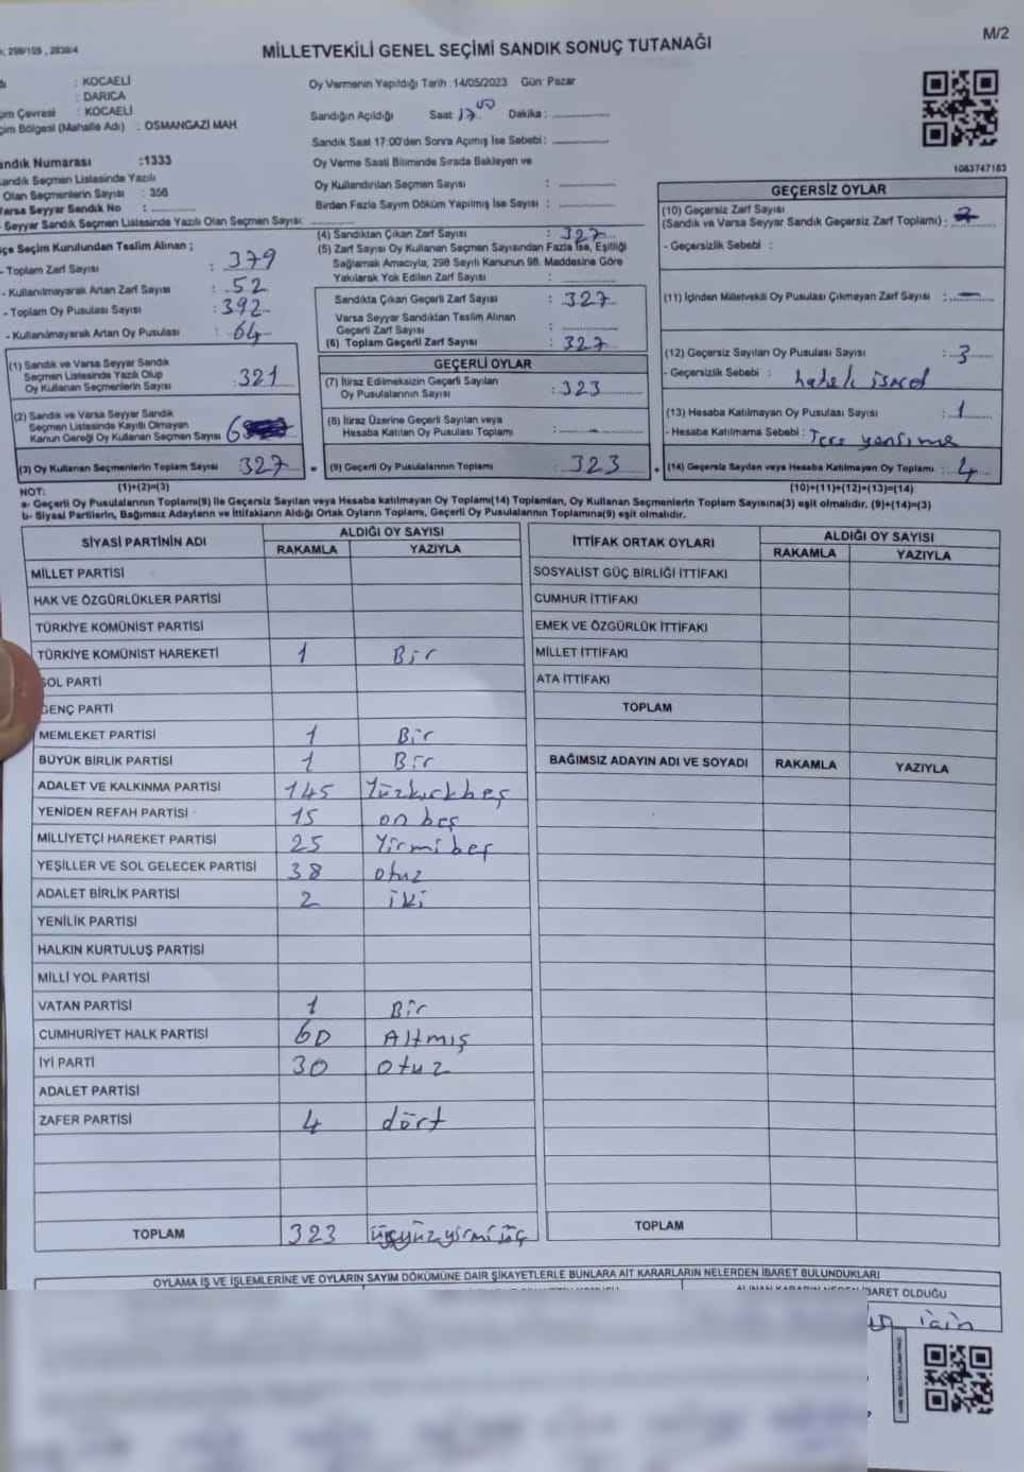 298/105 , 2839/4
MİLLETVEKİLİ GENEL SEÇİMİ SANDIK SONUÇ TUTANAĞI
M/2
: KOCAELİ
: DARICA
Çevresi : KOCAELİ
Bölgesi (Mahalle Adı) : OSMANGAZİ MAH
Sandık Numarası :1333
Sandık Seçmen Listesinde Yazılı
Olan Seçmenlerin Sayısı : 356
Varsa Seyyar Sandık No :
- Seyyar Sandık Seçmen Listesinde Yazılı Olan Seçmen Sayısı:
Oy Vermenin Yapıldığı Tarih :14/05/2023 Gün: Pazar
Sandığın Açıldığı Saat 17.00 Dakika :
Sandık Saat 17:00'den Sonra Açılmış İse Sebebi :
Oy Verme Saati Bitiminde Sırada Bekleyen ve
Oy Kullandırılan Seçmen Sayısı :
Birden Fazla Sayım Döküm Yapılmış İse Sayısı :
1063747163
İlçe Seçim Kurulundan Teslim Alınan ;
- Toplam Zarf Sayısı : 379
- Kullanılmayarak Artan Zarf Sayısı : 52
- Toplam Oy Pusulası Sayısı : 392
- Kullanılmayarak Artan Oy Pusulası : 64
(1) Sandık ve Varsa Seyyar Sandık
Seçmen Listesinde Yazılı Olup
Oy Kullanan Seçmenlerin Sayısı : 321
(2) Sandık ve Varsa Seyyar Sandık
Seçmen Listesinde Kayıtlı Olmayan
Kanun Gereği Oy Kullanan Seçmen Sayısı : 6
(3) Oy Kullanan Seçmenlerin Toplam Sayısı 327
(1)+(2)=(3)
(4) Sandıktan Çıkan Zarf Sayısı : 327
(5) Zarf Sayısı Oy Kullanan Seçmen Sayısından Fazla İse, Eşitliği
Sağlamak Amacıyla, 298 Sayılı Kanunun 98. Maddesine Göre
Yakılarak Yok Edilen Zarf Sayısı :
Sandıkta Çıkan Geçerli Zarf Sayısı : 327
Varsa Seyyar Sandıktan Teslim Alınan
Geçerli Zarf Sayısı :
(6) Toplam Geçerli Zarf Sayısı : 327
GEÇERLİ OYLAR
(7) İtiraz Edilmeksizin Geçerli Sayılan
Oy Pusulalarının Sayısı : 323
(8) İtiraz Üzerine Geçerli Sayılan veya
Hesaba Katılan Oy Pusulası Toplamı : -
(9) Geçerli Oy Pusulalarının Toplamı : 323
GEÇERSİZ OYLAR
(10) Geçersiz Zarf Sayısı
(Sandık ve Varsa Seyyar Sandık Geçersiz Zarf Toplamı) :
- Geçersizlik Sebebi :
(11) İçinden Milletvekili Oy Pusulası Çıkmayan Zarf Sayısı : -
(12) Geçersiz Sayılan Oy Pusulası Sayısı : 3
- Geçersizlik Sebebi : hatalı işaret
(13) Hesaba Katılmayan Oy Pusulası Sayısı : 1
- Hesaba Katılmama Sebebi :
(14) Geçersiz Sayılan veya Hesaba Katılmayan Oy Toplamı : 4
(10)+(11)+(12)+(13)=(14)
NOT:
a- Geçerli Oy Pusulalarının Toplamı(9) ile Geçersiz Sayılan veya Hesaba katılmayan Oy Toplamı(14) Toplamları, Oy Kullanan Seçmenlerin Toplam Sayısına(3) eşit olmalıdır. (9)+(14)=(3)
b- Siyasi Partilerin, Bağımsız Adayların ve İttifakların Aldığı Ortak Oyların Toplamı, Geçerli Oy Pusulalarının Toplamına(9) eşit olmalıdır.
SİYASİ PARTİNİN ADI ALDIĞI OY SAYISI
RAKAMLA YAZIYLA
MİLLET PARTİSİ
HAK VE ÖZGÜRLÜKLER PARTİSİ
TÜRKİYE KOMÜNİST PARTİSİ
TÜRKİYE KOMÜNİST HAREKETİ 1 Bir
SOL PARTİ
GENÇ PARTİ
MEMLEKET PARTİSİ 1 Bir
BÜYÜK BİRLİK PARTİSİ 1 Bir
ADALET VE KALKINMA PARTİSİ 145 Yüzkırkbeş
YENİDEN REFAH PARTİSİ 15 on beş
MİLLİYETÇİ HAREKET PARTİSİ 25 Yirmi beş
YEŞİLLER VE SOL GELECEK PARTİSİ 38 otuz
ADALET BİRLİK PARTİSİ 2 iki
YENİLİK PARTİSİ
HALKIN KURTULUŞ PARTİSİ
MİLLİ YOL PARTİSİ
VATAN PARTİSİ 1 Bir
CUMHURİYET HALK PARTİSİ 60 Altmış
İYİ PARTİ 30 otuz
ADALET PARTİSİ
ZAFER PARTİSİ 4 dört
TOPLAM 323 üçyüzyirmi üç
İTTİFAK ORTAK OYLARI ALDIĞI OY SAYISI
RAKAMLA YAZIYLA
SOSYALİST GÜÇ BİRLİĞİ İTTİFAKI
CUMHUR İTTİFAKI
EMEK VE ÖZGÜRLÜK İTTİFAKI
MİLLET İTTİFAKI
ATA İTTİFAKI
TOPLAM
BAĞIMSIZ ADAYIN ADI VE SOYADI RAKAMLA YAZIYLA
TOPLAM
OYLAMA İŞ VE İŞLEMLERİNE VE OYLARIN SAYIM DÖKÜMÜNE DAİR ŞİKAYETLERLE BUNLARA AİT KARARLARIN NELERDEN İBARET BULUNDUKLARI
İBARET OLDUĞU
için